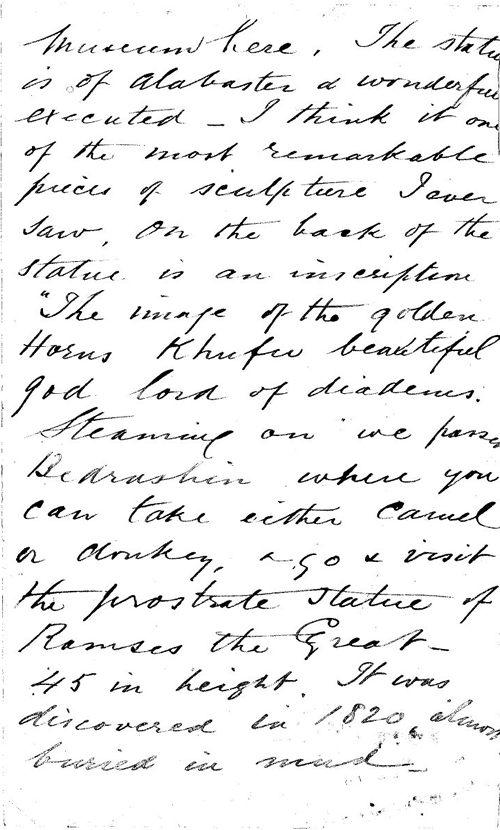 Museum here. The statu
is of Alabaster & wonderful
executed - I think it one
of the most remarkable
pieces of sculpture I ever
saw. On the back of the
statue is an inscription
"The image of the golden
Horus Khufu beautiful
god lord of diadems.
Steaming on we passed
Bedrashin where you
can take either Camel
or donkey, & go & visit
the prostrate statue of
Ramses the Great -
45 in height. It was
discovered in 1820, almos
buried in mud -